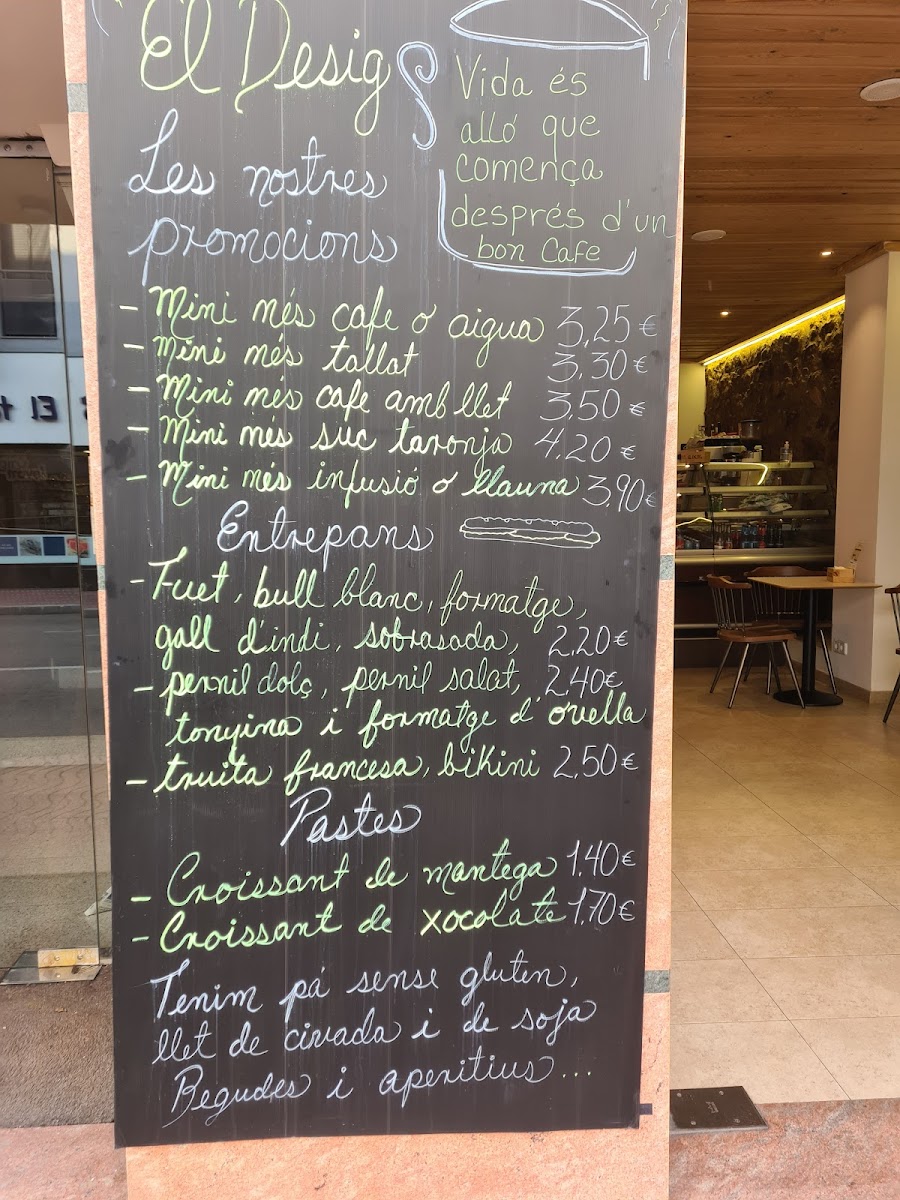 El Desig
Vida és
alló que
comença
després d'un
bon Cafe
Les nostres
promocions
- Mini més cafe o aigua 3,25 €
- Mini més tallat 3.30 €
- Mini més cafe amb llet 3.50 €
- Mini més suc taronja 4.20 €
- Mini més infusió o llauna 3.90 €
Entrepans
- Fuet, bull blanc, formatge,
gall d'indi, sobrasada, 2.20 €
- pernil dolç, pernil salat, 2.40 €
tonyina i formatge d'ovella
- truita francesa, bikini 2.50 €
Pastes
- Croissant de mantega 1.40 €
- Croissant de xocolate 1.70 €
Tenim pá sense gluten,
llet de civada i de soja
Begudes i aperitius...